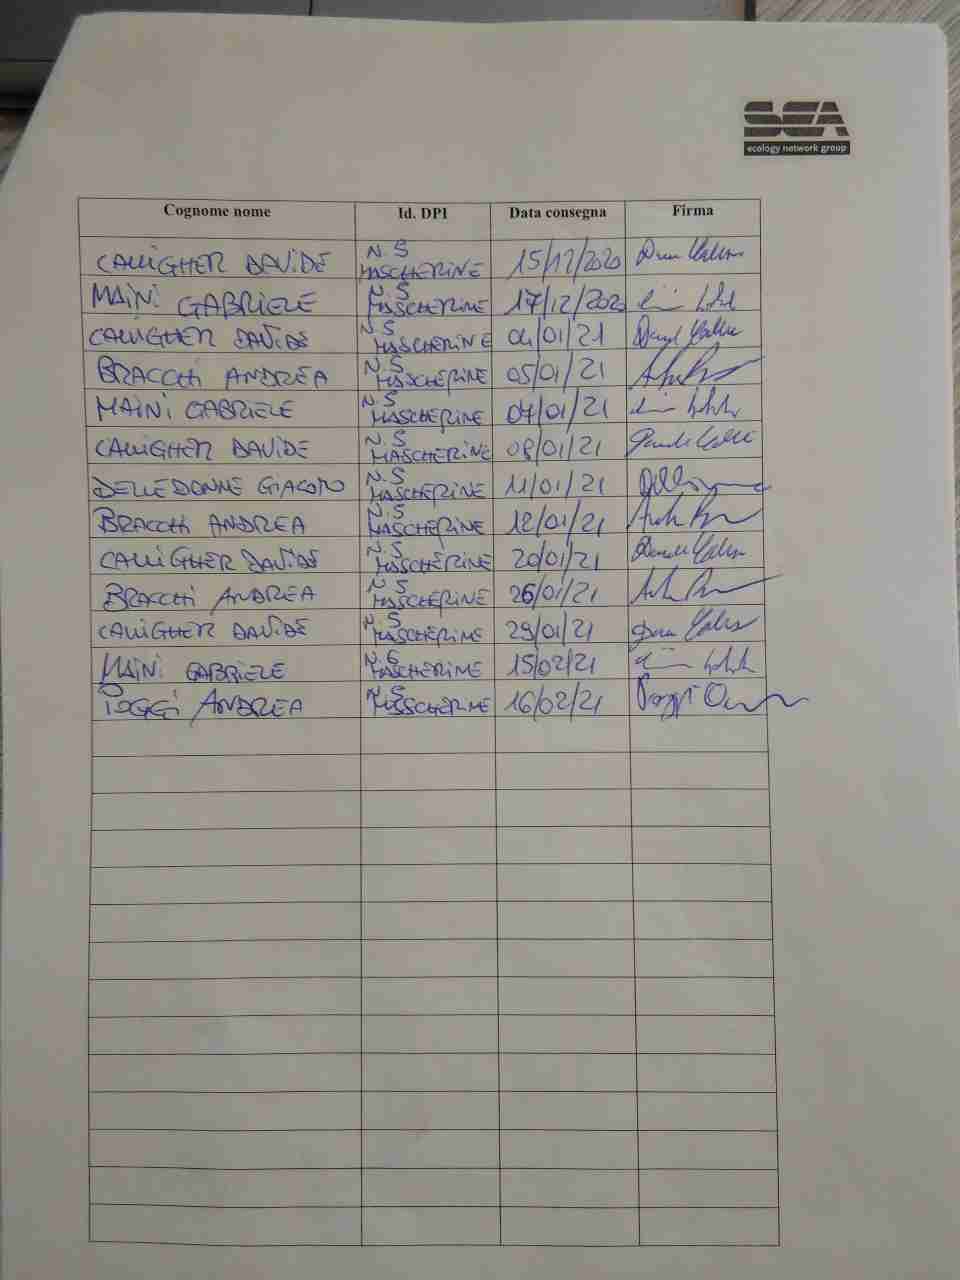 SEA
ecology network group
Cognome nome Id. DPI Data consegna Firma
CAVIGHER DAVIDE N.5 MASCHERINE 15/12/2020
MAINI GABRIELE N.5 MASCHERINE 17/12/2020
CAVIGHER DAVIDE N.5 MASCHERINE 04/01/21
BRACCHI ANDREA N.5 MASCHERINE 05/01/21
MAINI GABRIELE N.5 MASCHERINE 07/01/21
CAVIGHER DAVIDE N.5 MASCHERINE 08/01/21
DELLEDONNE GIACOMO N.5 MASCHERINE 11/01/21
BRACCHI ANDREA N.5 MASCHERINE 12/01/21
CAVIGHER DAVIDE N.5 MASCHERINE 20/01/21
BRACCHI ANDREA N.5 MASCHERINE 26/01/21
CAVIGHER DAVIDE N.5 MASCHERINE 29/01/21
MAINI GABRIELE N.5 MASCHERINE 15/02/21
POGGI ANDREA N.5 MASCHERINE 16/02/21